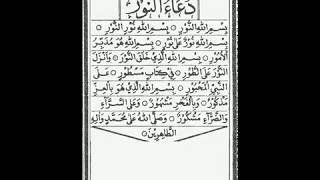 دُعَاءُ النُّوْرِ
بِسْمِ اللهِ النُّوْرِ ۞ بِسْمِ اللهِ نُوْرِ النُّوْرِ ۞
بِسْمِ اللهِ نُوْرٌ عَلٰى نُوْرٍ ۞ بِسْمِ اللهِ الَّذِيْ هُوَ مُدَبِّرُ
الْاُمُوْرِ ۞ بِسْمِ اللهِ الَّذِيْ خَلَقَ النُّوْرَ ۞ وَاَنْزَلَ
النُّوْرَ عَلَى الطُّوْرِ ۞ فِيْ كِتَابٍ مَسْطُوْرٍ ۞ عَلٰى
النَّبِيِّ الْمَحْبُوْرِ ۞ بِسْمِ اللهِ الَّذِيْ هُوَ بِالْعِزِّ
مَذْكُوْرٌ ۞ وَبِالْفَخْرِ مَشْهُوْرٌ ۞ وَعَلَى السَّرَّآءِ
وَالضَّرَّآءِ مَشْكُوْرٌ ۞ وَصَلَّى اللهُ عَلٰى مُحَمَّدٍ وَاٰلِهِ
الطَّاهِرِيْنَ ۞